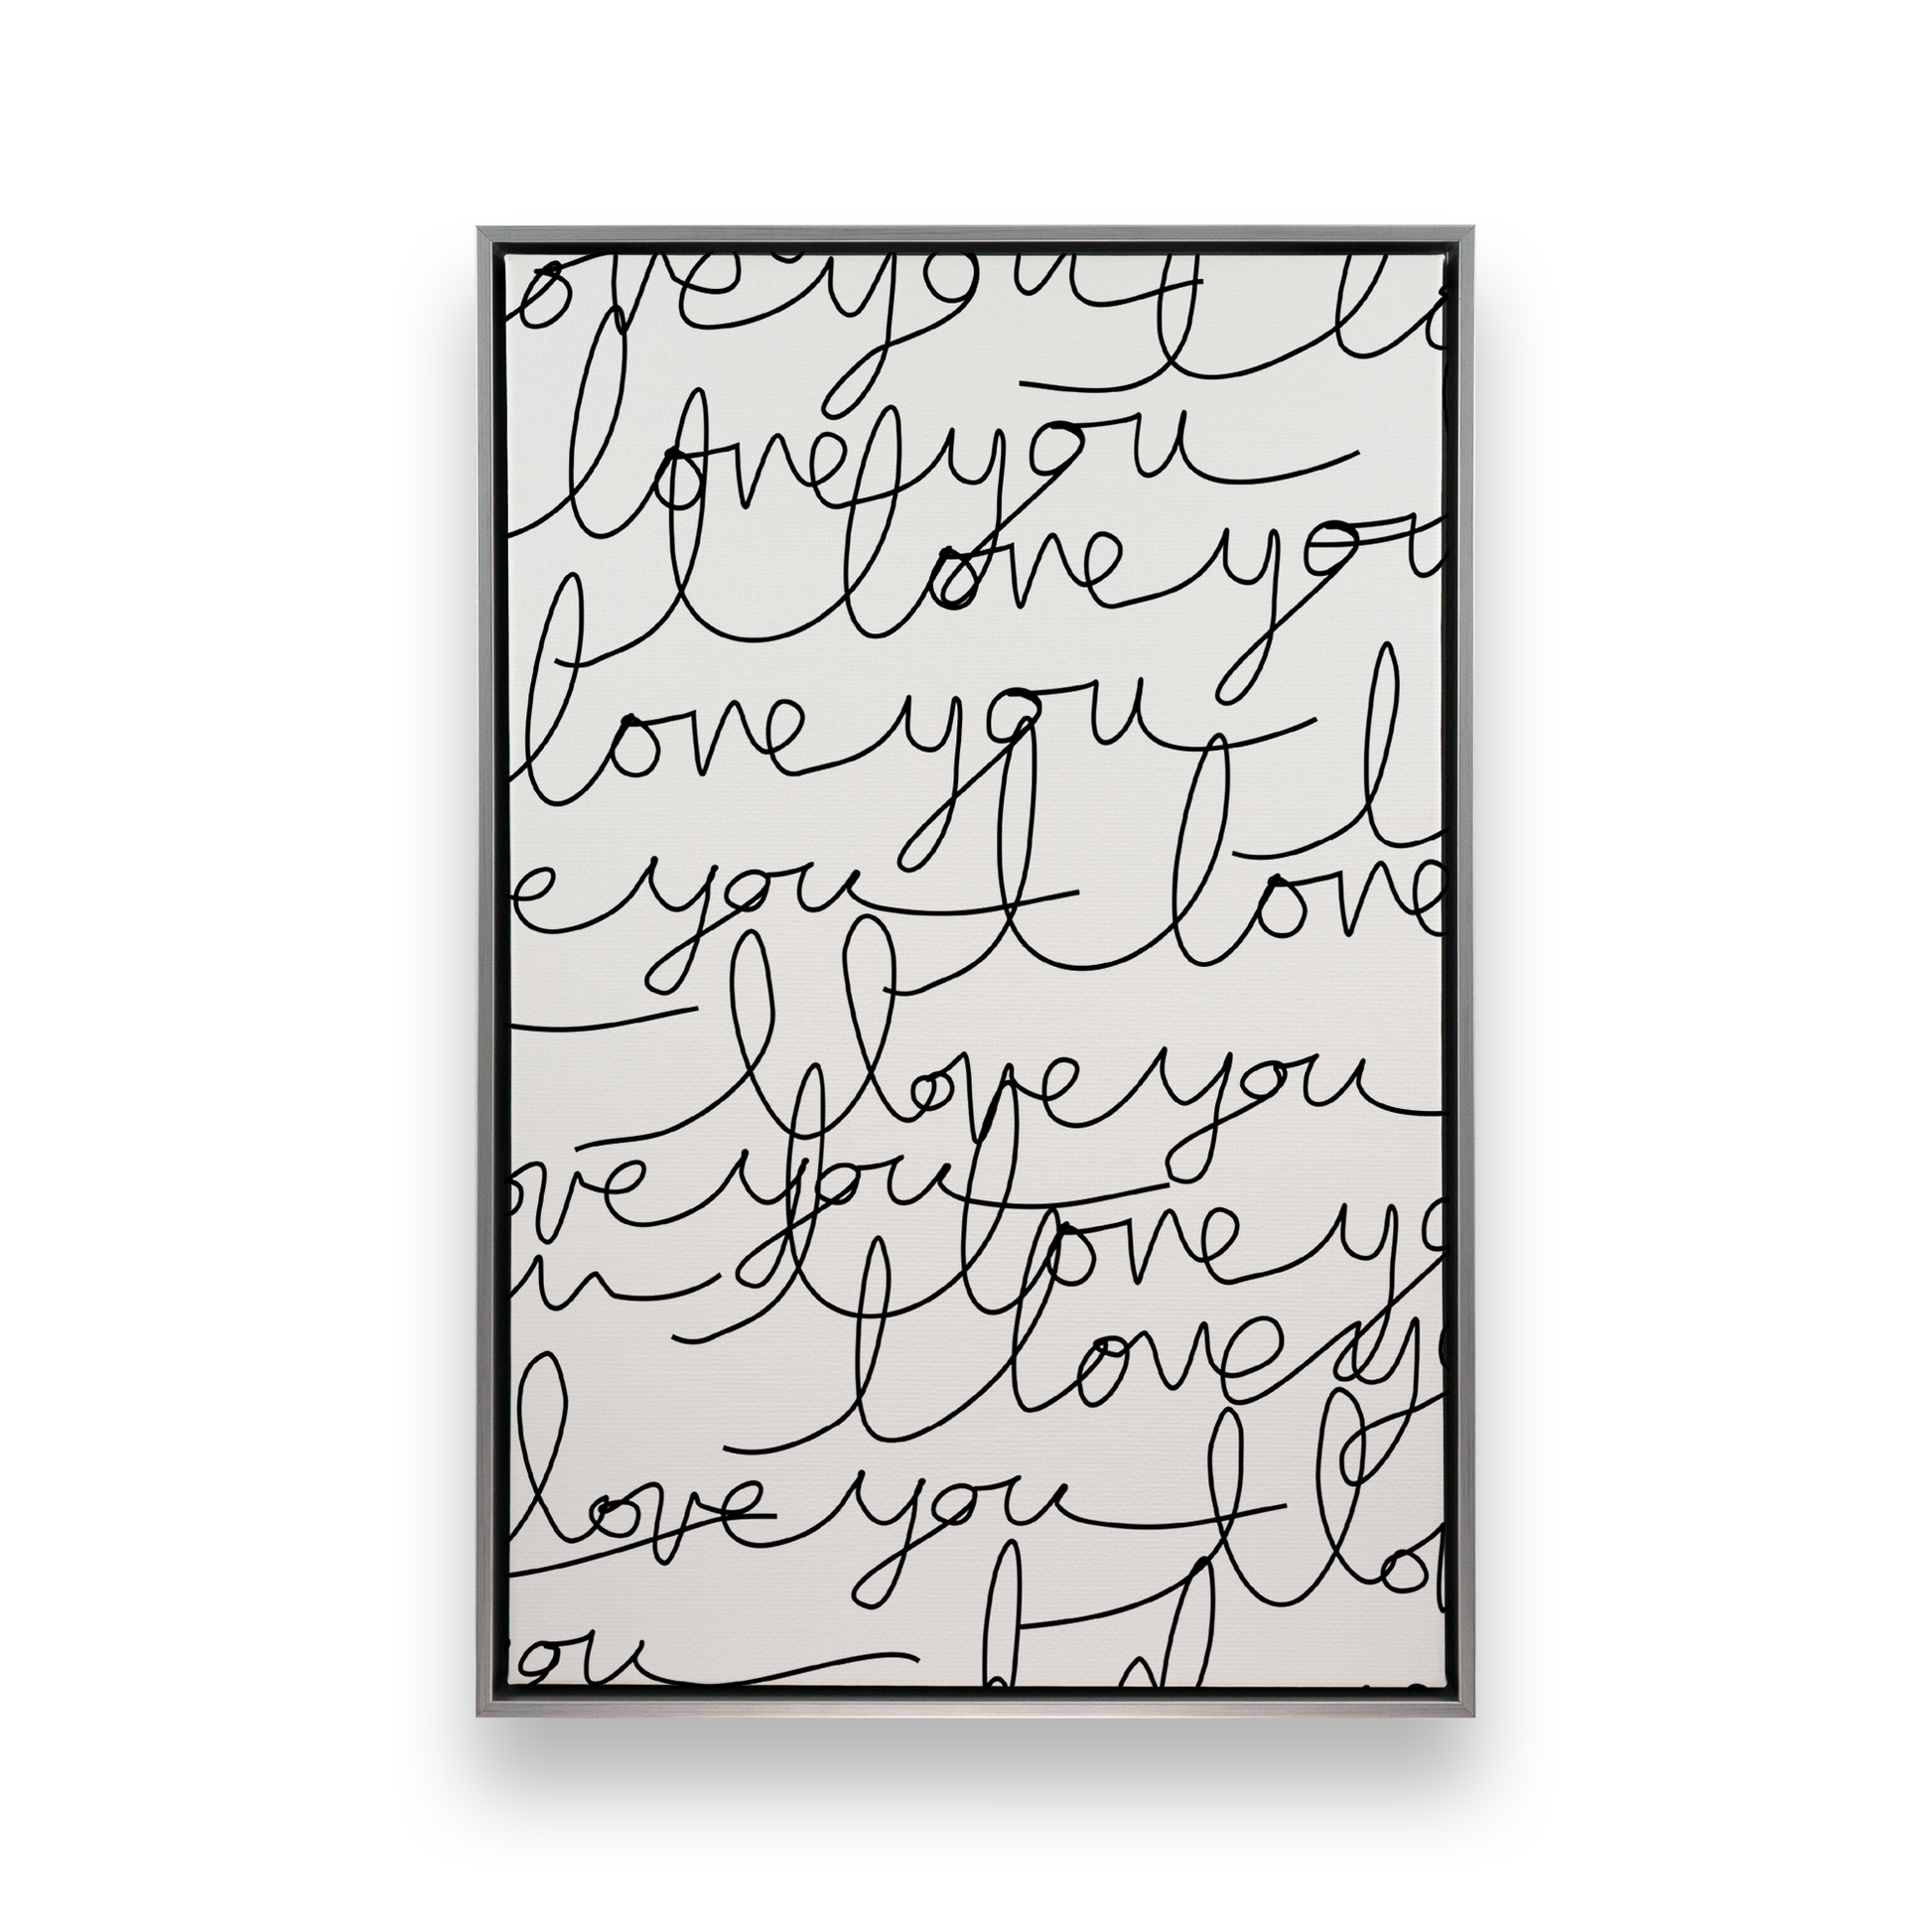 ove you I lo
love you
I love you
love you I
e you I love
I love you
ove you
I love yo
u
I love y
love you I lo
ou I